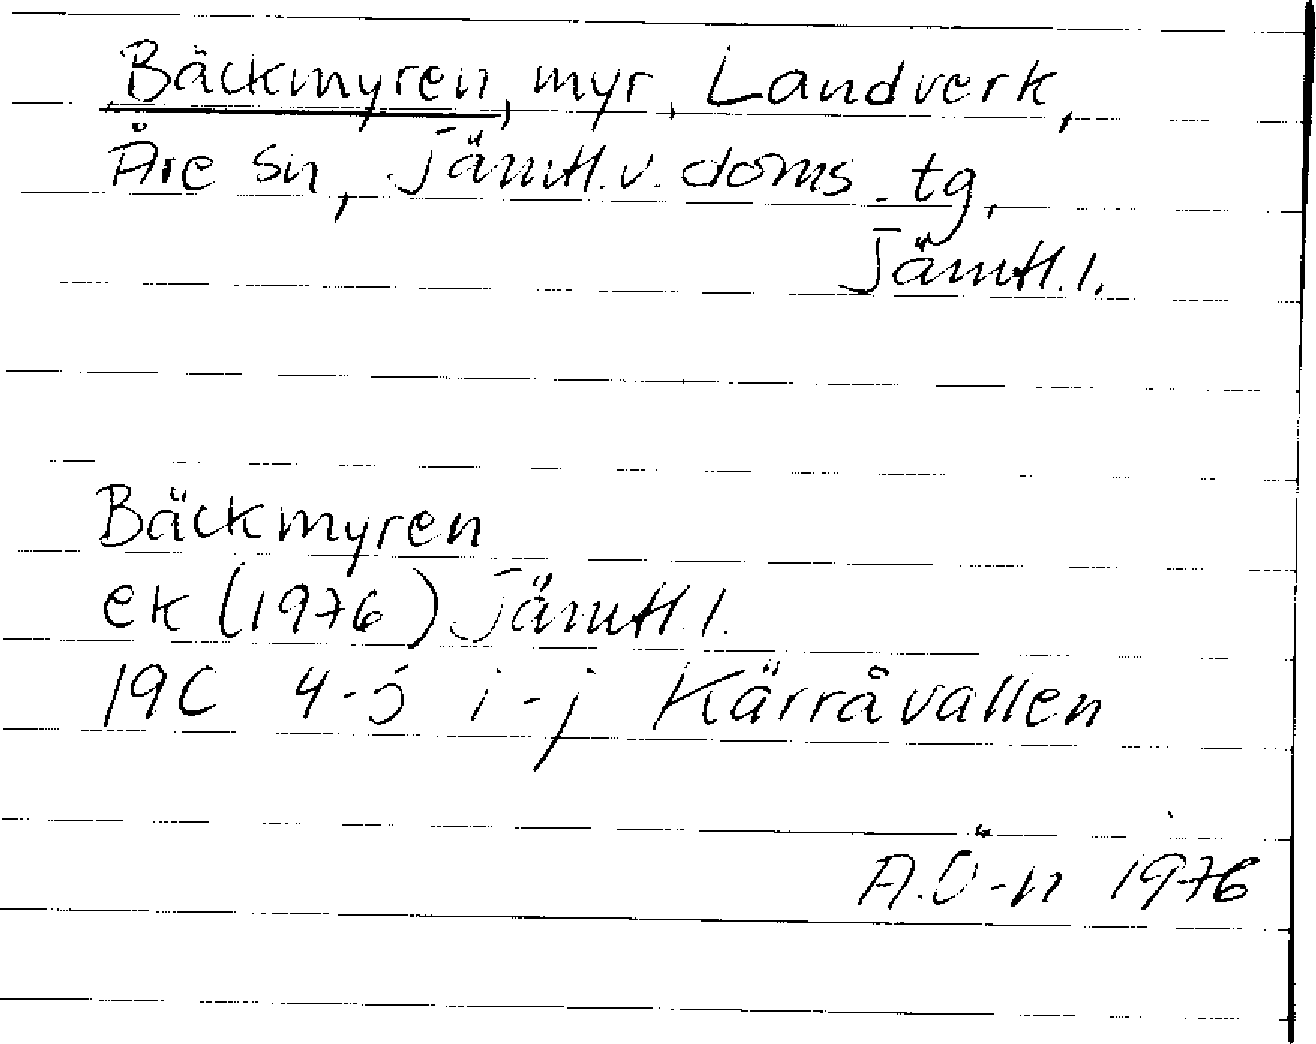 Bäckmyren, myr, Landverk,
Åre sn, Jämtl. v. doms. tg,
Jämtl. l.
Bäckmyren
ek (1976) Jämtl. l.
19C 4-5 i-j Kärråvallen
A.Ö-n 1976